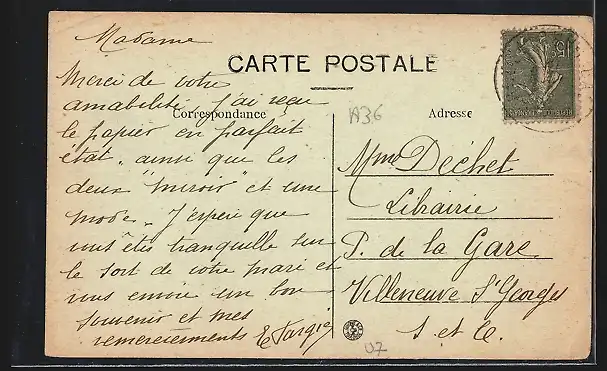 Madame
CARTE POSTALE
Merci de votre
amabilité, j'ai reçu
le papier en parfait
état, ainsi que les
deux "miroir" et une
mode. J'espère que
vous êtes tranquille sur
le sort de votre mari et
vous envoie un bon
souvenir et mes
remerciements
Correspondance
Adresse
A36
Mme Déchet
Librairie
P. de la Gare
Villeneuve St Georges
S. et O.
15
U7